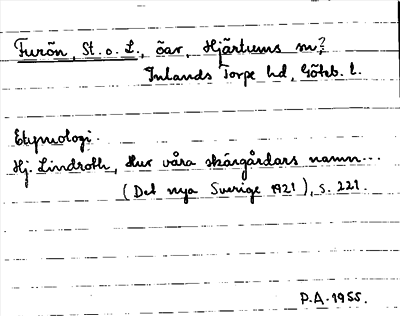 Furön, St. o. L., öar, Hjärtums sn?
Inlands Torpe hd, Göteb. l.
Etymologi.
Hj. Lindroth, Hur våra skärgårdars namn...
(Det nya Sverige 1921), s. 221.
P.A. 1955.